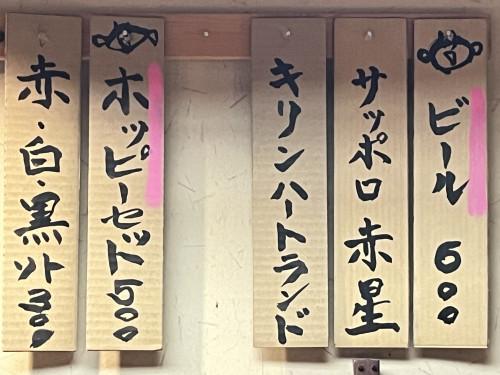 ビール 600
サッポロ赤星
キリンハートランド
ホッピーセット500
赤・白・黒ソト300